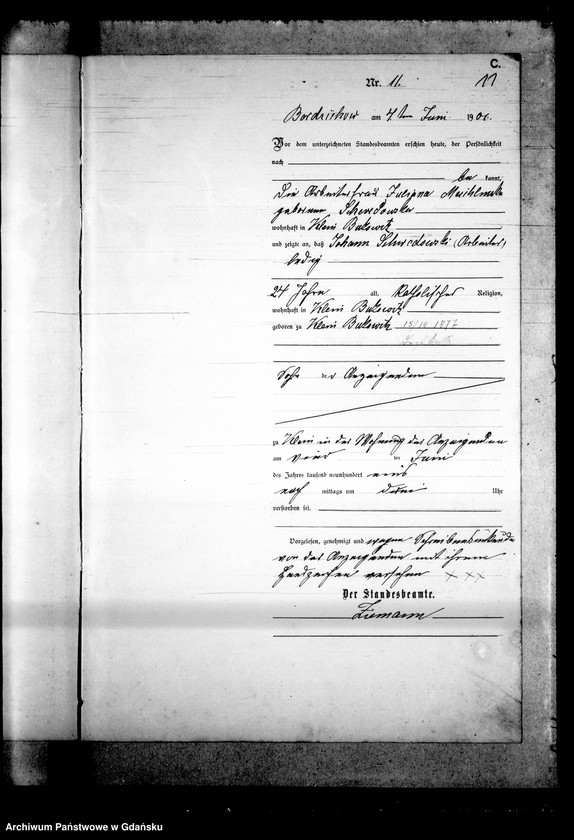 C.
Nr. 11. 11
Bordzichow am 4ten Juni 1901.
Vor dem unterzeichneten Standesbeamten erschien heute, der Persönlichkeit
nach
be kannt,
die Arbeiterfrau Julianna
geborene
wohnhaft in Klein Bukowitz
und zeigte an, daß Johann Schwedowski (Arbeiter)
ledig
24 Jahre alt, katholischer Religion,
wohnhaft in Klein Bukowitz
geboren zu Klein Bukowitz 1877
Sohn der Anzeigenden
zu Klein in der Wohnung der Anzeigenden
am vier ten Juni
des Jahres tausend neunhundert eins
nach mittags um drei Uhr
verstorben sei.
Vorgelesen, genehmigt und wegen Schreibensunkunde
von der Anzeigenden mit ihrem
Handzeichen versehen XXX
Der Standesbeamte.
Ziemann
Archiwum Państwowe w Gdańsku